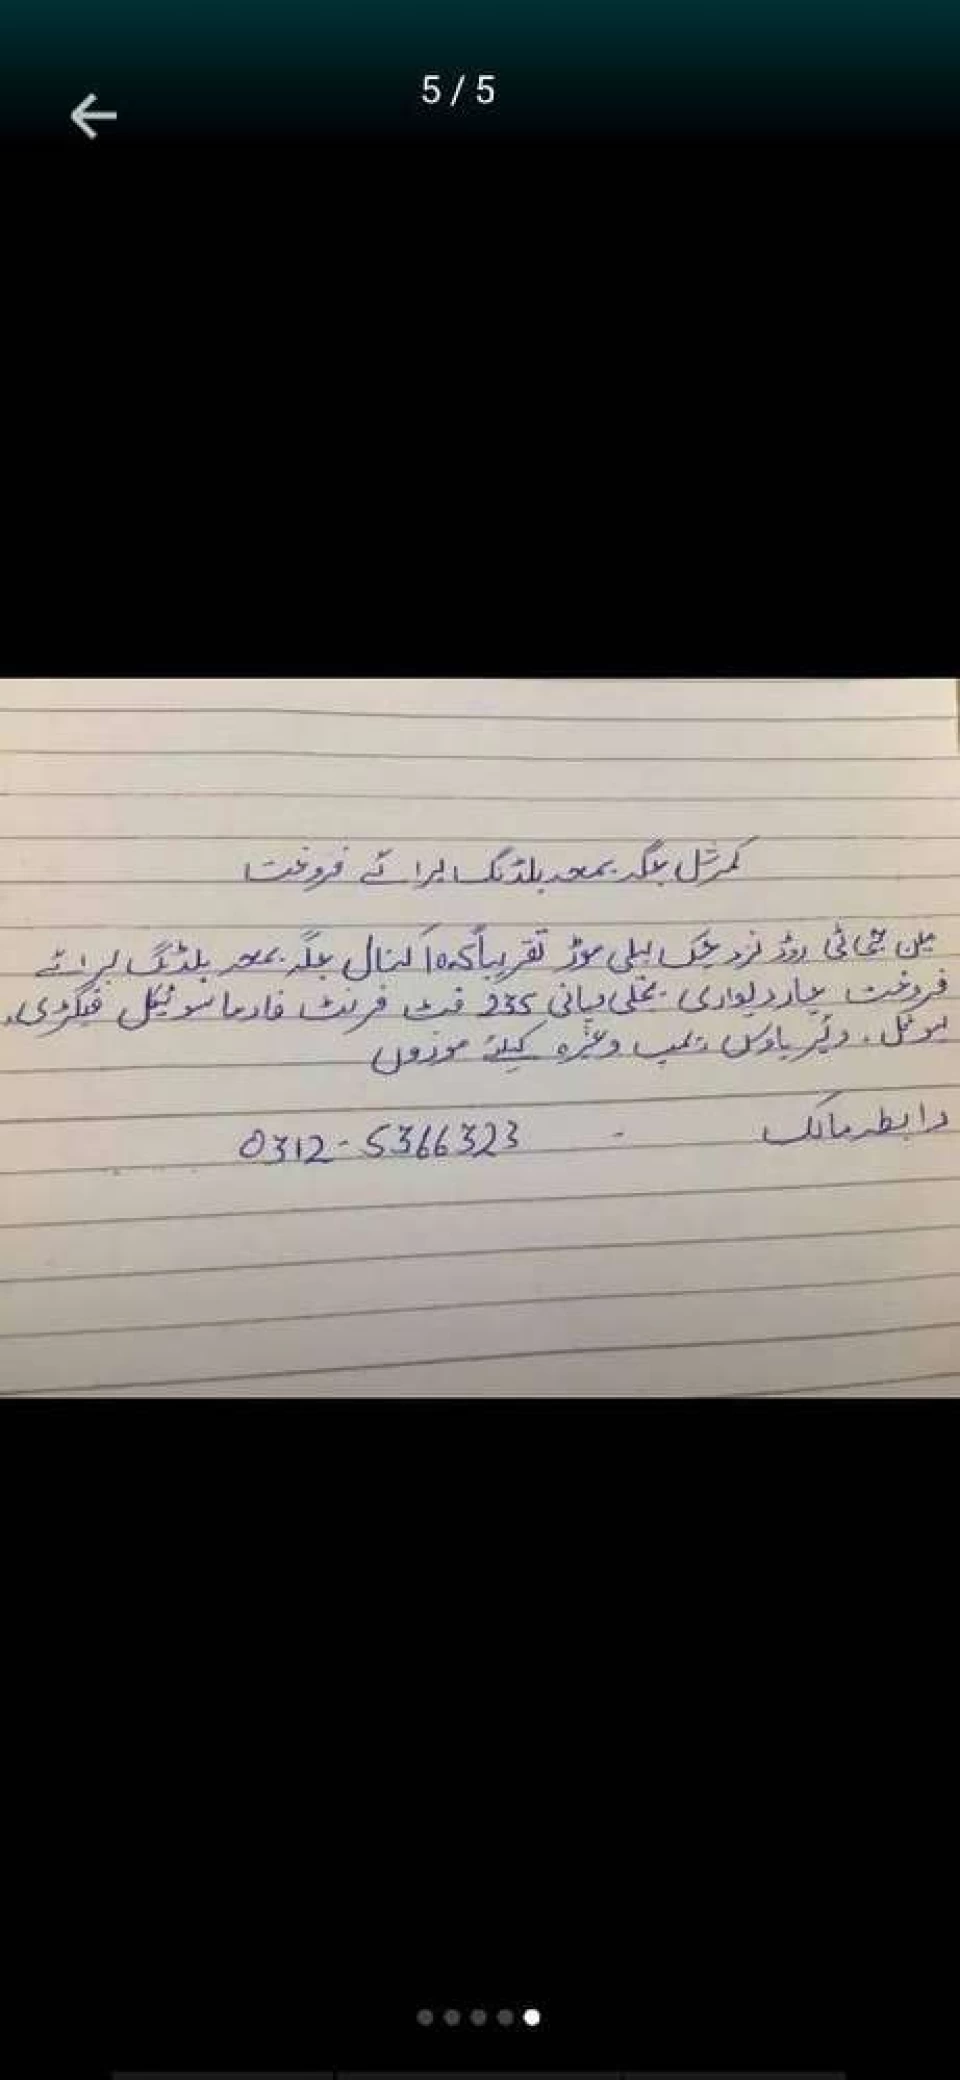 5 / 5
کمرشل جگہ بمعہ بلڈنگ برائے فروخت
مین جی ٹی روڈ نزد چک بیلی موڑ تقریباً کنال جگہ بمعہ بلڈنگ برائے
فروخت چار دیواری بجلی پانی 235 فٹ فرنٹ فارماسوٹیکل فیکٹری،
ہوٹل، ویئر ہاوس پمپ وغیرہ کیلئے موزوں
رابطہ مالک - 0312-5366323